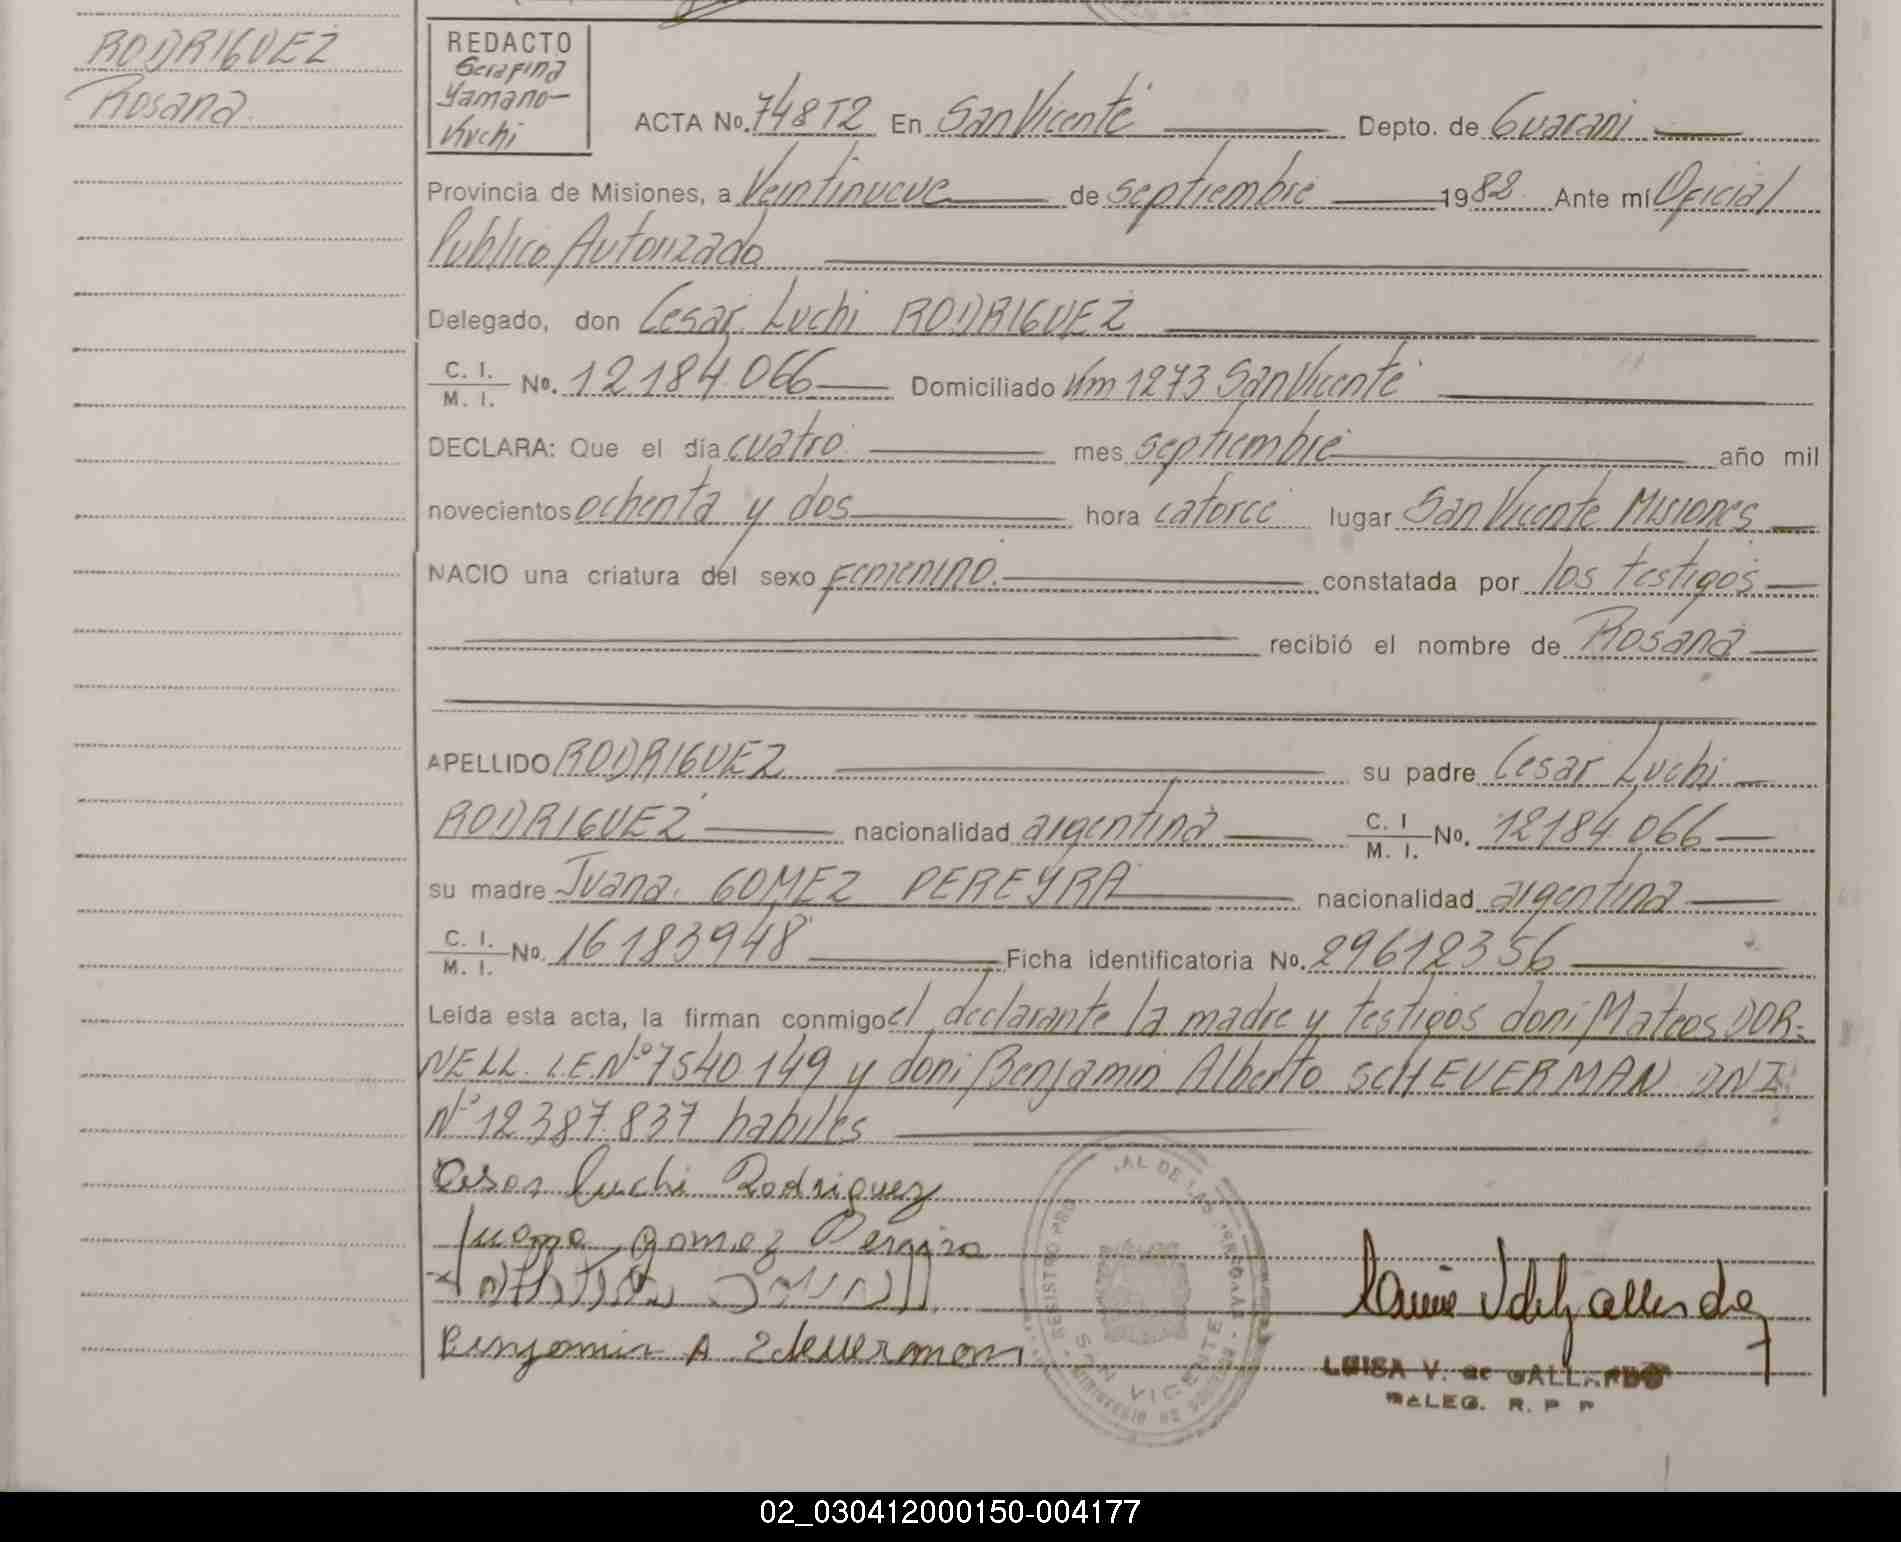 RODRIGUEZ
Rosana
REDACTO
Serafina
Yamano-
Kuchi
ACTA No. 748 T2 En San Vicente Depto. de Guarani
Provincia de Misiones, a Veintinueve de septiembre 1982 Ante mí Oficial
Publico Autorizado
Delegado, don Cesar Luchi RODRIGUEZ
C. I. / M. I. No. 12184.066 Domiciliado Km 1273 San Vicente
DECLARA: Que el día cuatro mes septiembre año mil
novecientos ochenta y dos hora catorce lugar San Vicente Misiones
NACIO una criatura del sexo femenino. constatada por los testigos
recibió el nombre de Rosana
APELLIDO RODRIGUEZ su padre Cesar Luchi
RODRIGUEZ nacionalidad argentina C. I / M. I. No. 12184.066
su madre Juana. GOMEZ PEREYRA nacionalidad argentina
C. I. / M. I. No. 16183948 Ficha identificatoria No. 29612356
Leída esta acta, la firman conmigo el declarante la madre y testigos don: Mateos DOR-
NELL. L.E.Nº 7540149 y don: Benjamin Alberto SCHEVERMAN DNI
Nº 12387.837 habiles
Cesar Luchi Rodriguez
Juana gomez Pereira
Benjamin A Scheverman
REGISTRO PRO AL DE LAS PERSONAS
SAN VICENTE
LUISA V. de GALLARDO
DELEG. R. P P
02_030412000150-004177